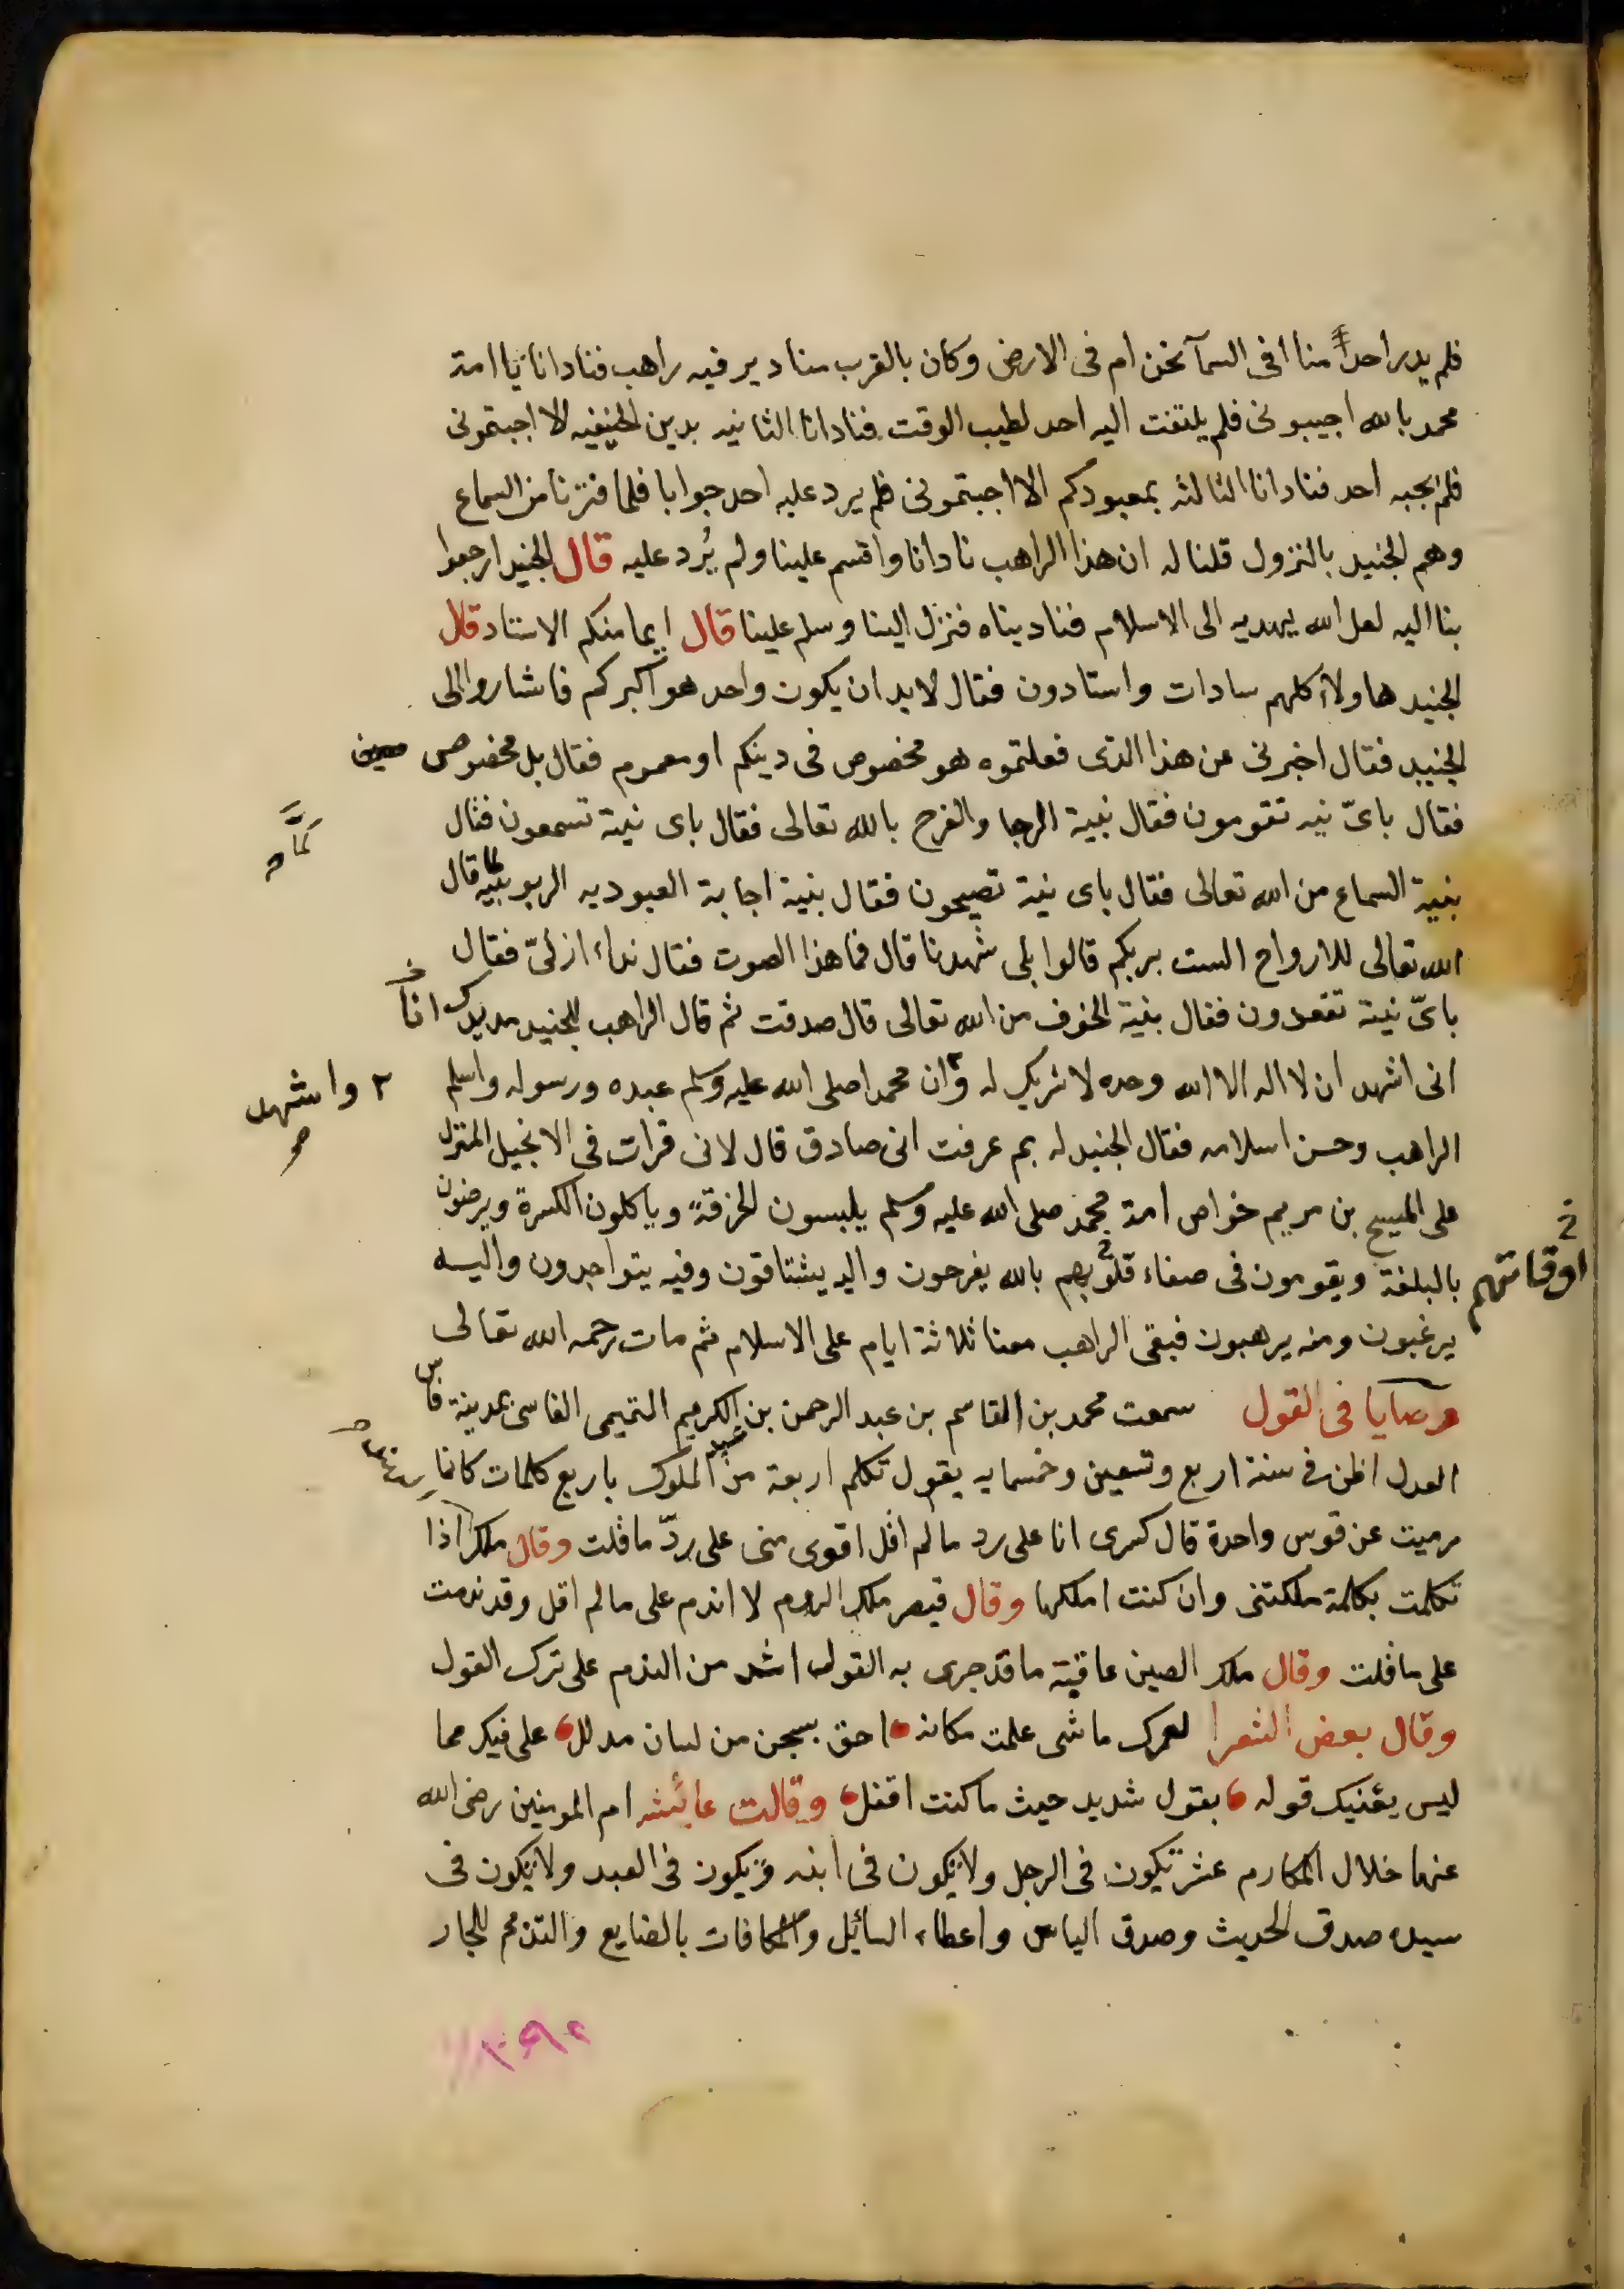 فلم يدر احدٌ منا افى السمآ نحن ام فى الارض وكان بالقرب منا دير فيه راهب فنادانا يا امة
محمد بالله اجيبونى فلم يلتفت اليه احد لطيب الوقت فنادانا الثانيه بدين الحنيفيه الا اجبتمونى
فلم يجبه احد فنادانا الثالثه بمعبودكم الا اجبتمونى فلم يرد عليه احد جوابا فلما فترنا من السماع
وهم الجنيد بالنزول قلنا له ان هذا الراهب نادانا واقسم علينا ولم يُرد عليه قال الجنيد ارجعوا
بنا اليه لعل الله يهديه الى الاسلام فناديناه فنزل الينا وسلم علينا قال ايما منكم الاستاد قال
الجنيد هاولآ كلهم سادات واستادون فقال لابد ان يكون واحد هو اكبركم فاشاروا الى
الجنيد فقال اخبرنى عن هذا الذى فعلتموه هو مخصوص فى دينكم او معموم فقال بل مخصوص
فقال باىّ نيه تقومون فقال بنية الرجا والفرح بالله تعالى فقال باى نية تسمعون فقال
بنية السماع من الله تعالى فقال باى نية تصيحون فقال بنية اجابة العبوديه الربوبيه كما قال
الله تعالى للارواح الست بربكم قالوا بلى شهدنا قال فما هذا الصوت فقال نداء ازلىّ فقال
باىّ نية تقعدون فقال بنية الخوف من الله تعالى قال صدقت ثم قال الراهب للجنيد مد يدك انا
انى اشهد ان لا اله الا الله وحده لا شريك له وان محمدا صلى الله عليه وسلم عبده ورسوله واسلم
٢ واشهد
الراهب وحسن اسلامه فقال الجنيد له بم عرفت انى صادق قال لانى قرات فى الانجيل المنزل
على المسيح بن مريم خواص امة محمد صلى الله عليه وسلم يلبسون الخرقة وياكلون الكسرة ويرضون
بالبلغة ويقومون فى صفاء قلوبهم بالله يفرحون واليه يشتاقون وفيه يتواجدون واليه
اوقاتهم
يرغبون ومنه يرهبون فبقى الراهب معنا ثلاثة ايام على الاسلام ثم مات رحمه الله تعالى
وصايا فى القول سمعت محمد بن القاسم بن عبد الرحمن بن عبد الكريم التميمى الفاسى بمدينة فاس
العدل اظن فى سنة اربع وتسعين وخمسمايه يقول تكلم اربعة من الملوك باربع كلمات كانما
رميت عن قوس واحدة قال كسرى انا على رد ما لم اقل اقوى منى على ردّ ما قلت وقال ملك اذا
تكلمت بكلمة ملكتنى وان كنت املكها وقال قيصر ملك الروم لا اندم على ما لم اقل وقد ندمت
على ما قلت وقال ملك الصين عاقبة ما قد جرى به القول اشد من الندم على ترك القول
وقال بعض الشعرا لعمرك ما شى علمت مكانه احق بسجن من لسان مدلل على فيك مما
ليس يعنيك قوله بقول شديد حيث ما كنت اقفل وقالت عائشه ام المومنين رضى الله
عنها خلال المكارم عشر تكون فى الرجل ولا تكون فى ابنه وتكون فى العبد ولا تكون فى
سيده صدق الحديث وصدق الباس واعطاء السائل والمكافات بالصنايع والتذمم للجار